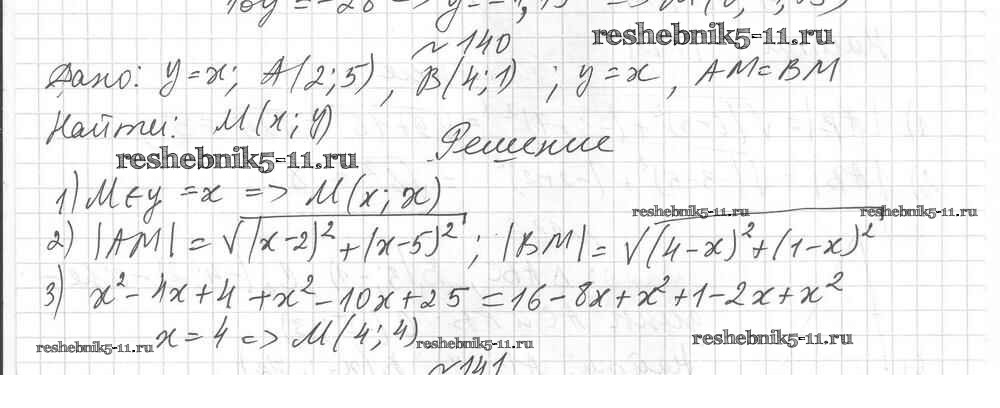 № 140
reshebnik5-11.ru
Дано: y=x; A(2;5), B(4;1) ; y=x, AM=BM
Найти: M(x;y)
Решение
reshebnik5-11.ru
1) M∈y =x => M(x; x)
reshebnik5-11.ru reshebnik5-11.ru
2) |AM| = √(x-2)²+(x-5)² ; |BM| = √(4-x)²+(1-x)²
3) x²-4x+4+x²-10x+25=16-8x+x²+1-2x+x²
x=4 => M(4; 4)
reshebnik5-11.ru reshebnik5-11.ru reshebnik5-11.ru
№ 141